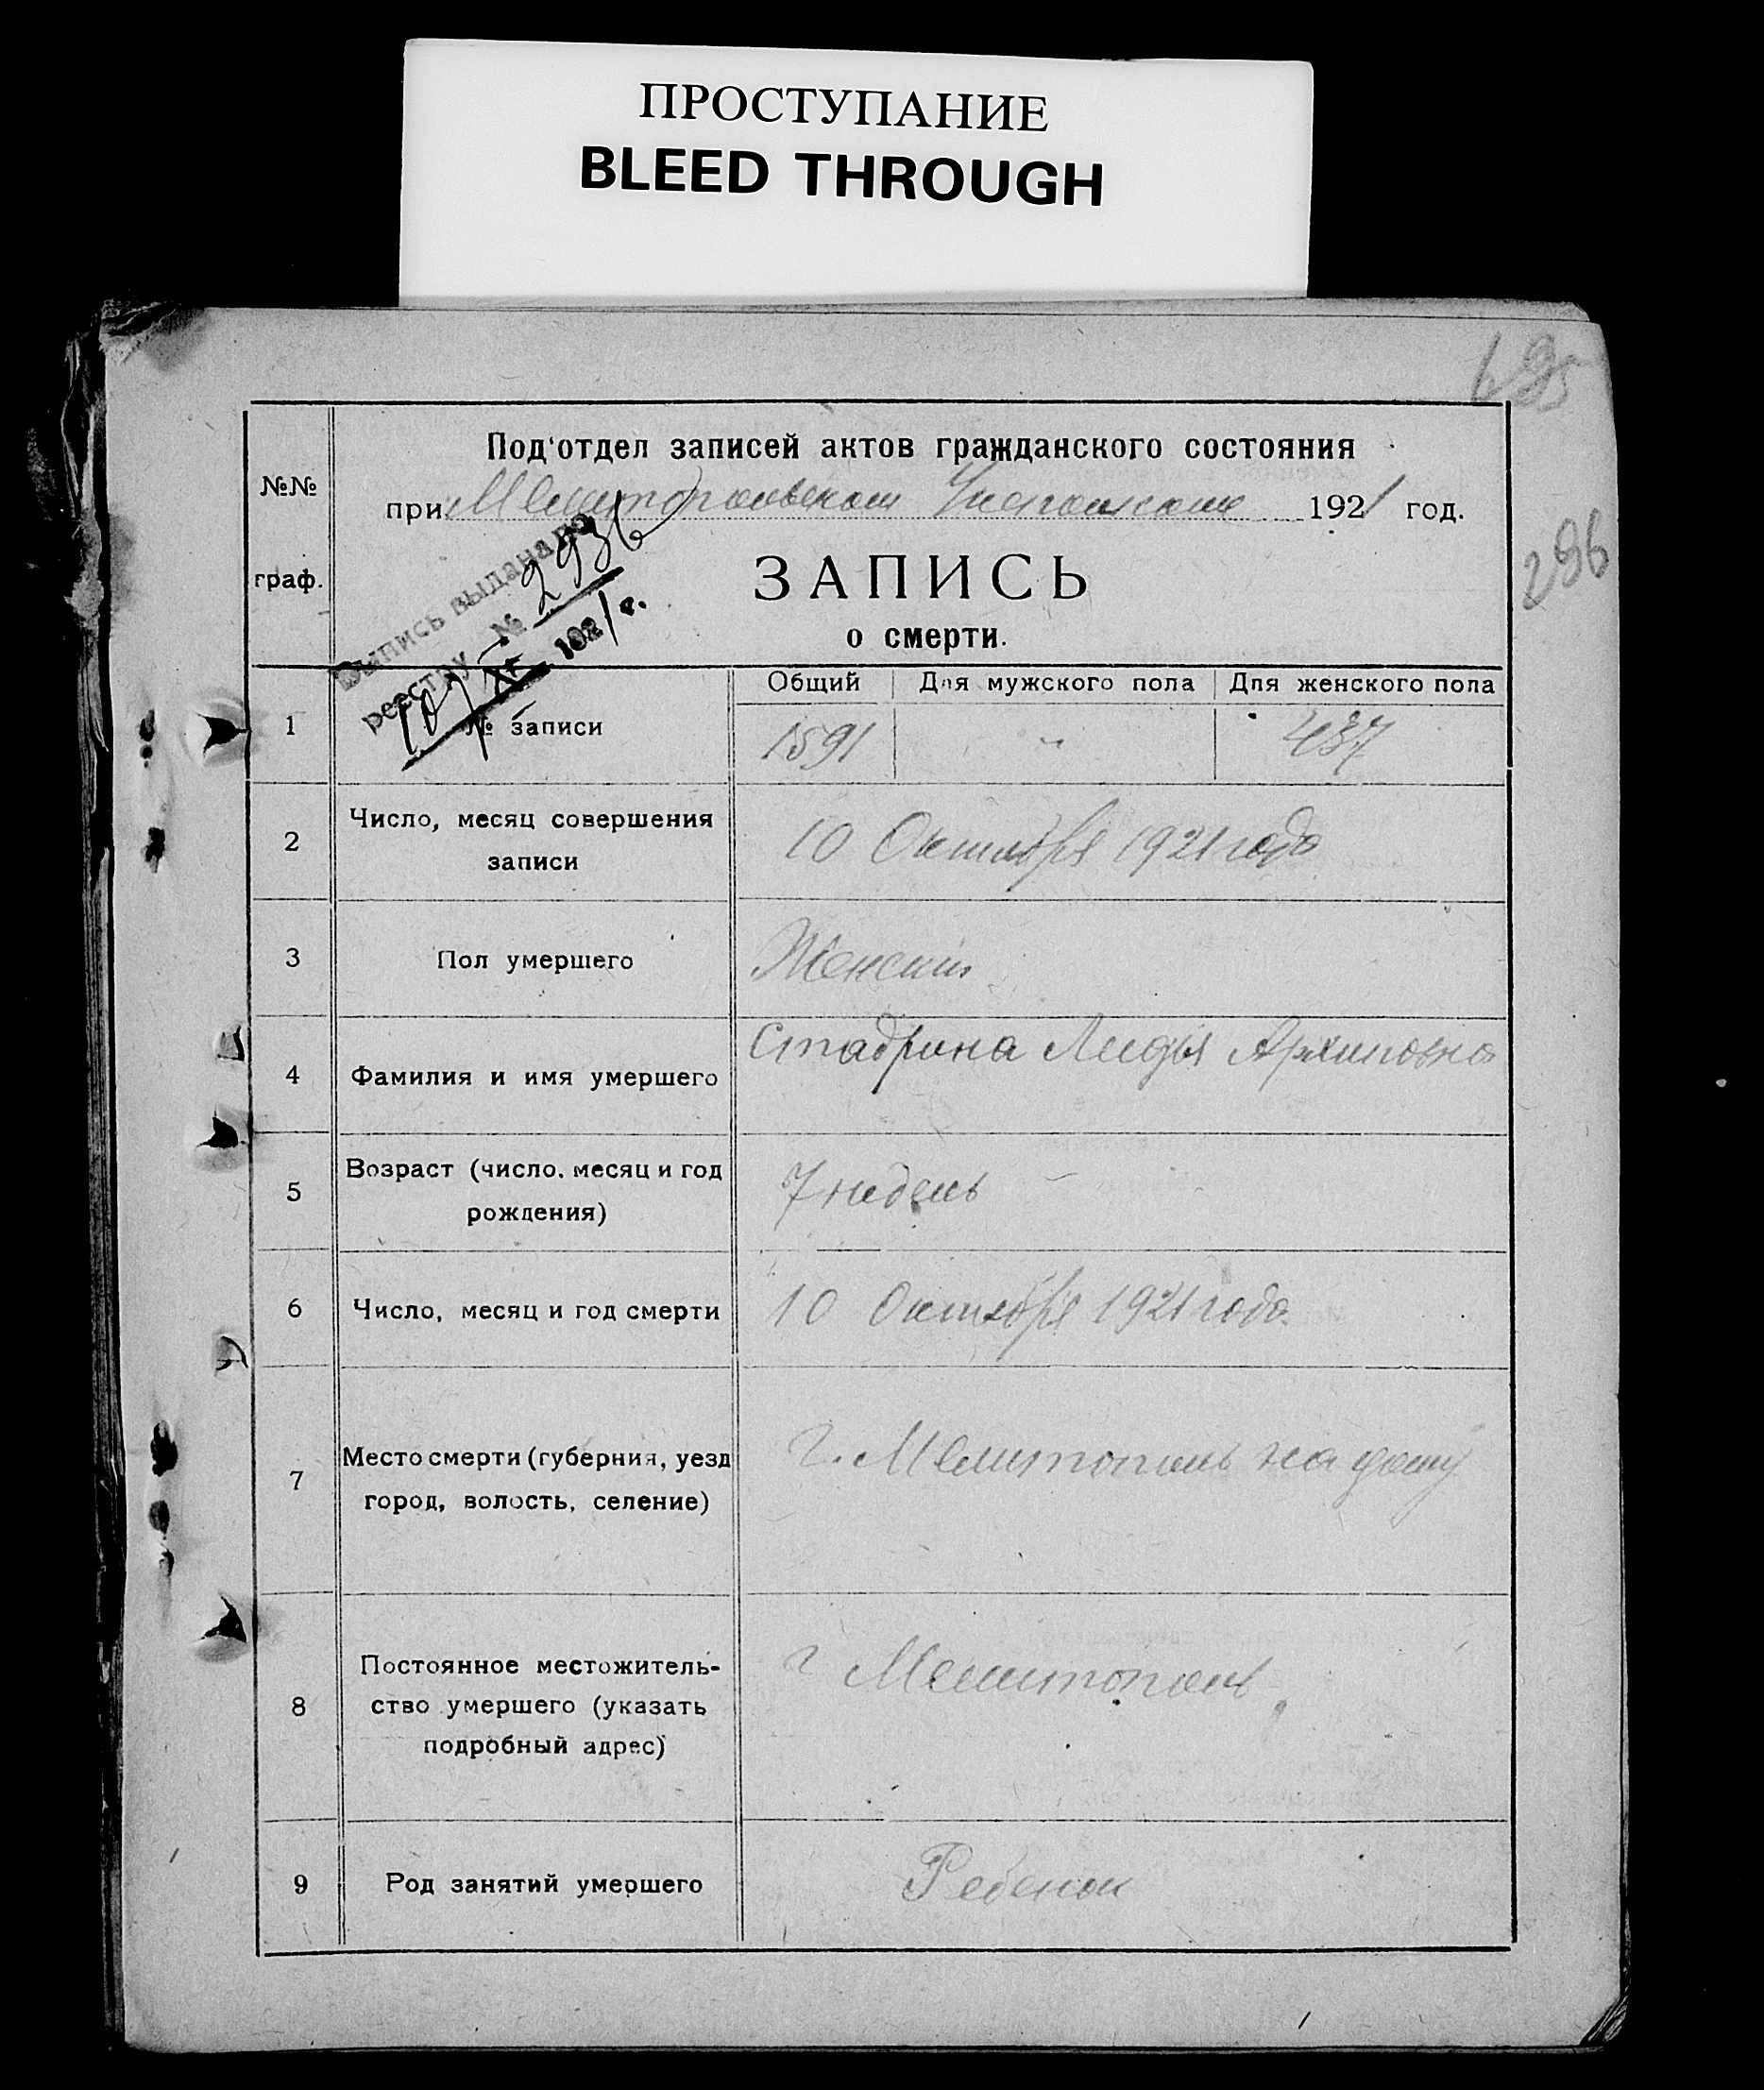 ПРОСТУПАНИЕ
BLEED THROUGH
№№
граф.
Под'отдел записей актов гражданского состояния
при Мелитопольском 1921 год.
ЗАПИСЬ
о смерти.
Выпись выдана по
реестру № 2936
10/XI 1921 г.
Общий Для мужского пола Для женского пола
1 № записи 1591 " 437
2 Число, месяц совершения
записи
10 Октября 1921 года
3 Пол умершего Женский
4 Фамилия и имя умершего Стадрина Лидья Архиповна
5 Возраст (число, месяц и год
рождения)
7 недель
6 Число, месяц и год смерти 10 Октября 1921 года.
7 Место смерти (губерния, уезд
город, волость, селение)
г. Мелитополь на дому
8 Постоянное местожитель-
ство умершего (указать
подробный адрес)
г Мелитополь
9 Род занятий умершего Ребенок
296